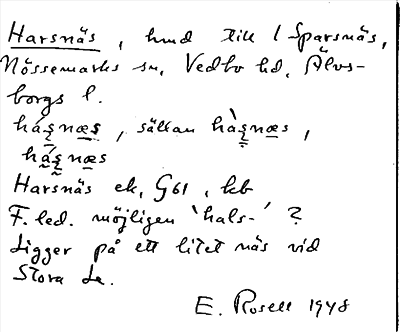 Harsnäs, hmd till 1 Sparsnäs,
Nössemarks sn, Vedbo hd, Älvs-
borgs l.
há̱ʂnæs, sällan hàʂnæs,
há̱ʂnæs
Harsnäs ek, G61, kb
F. led. möjligen 'hals-' ?
Ligger på ett litet näs vid
Stora Le.
E. Rosell 1948